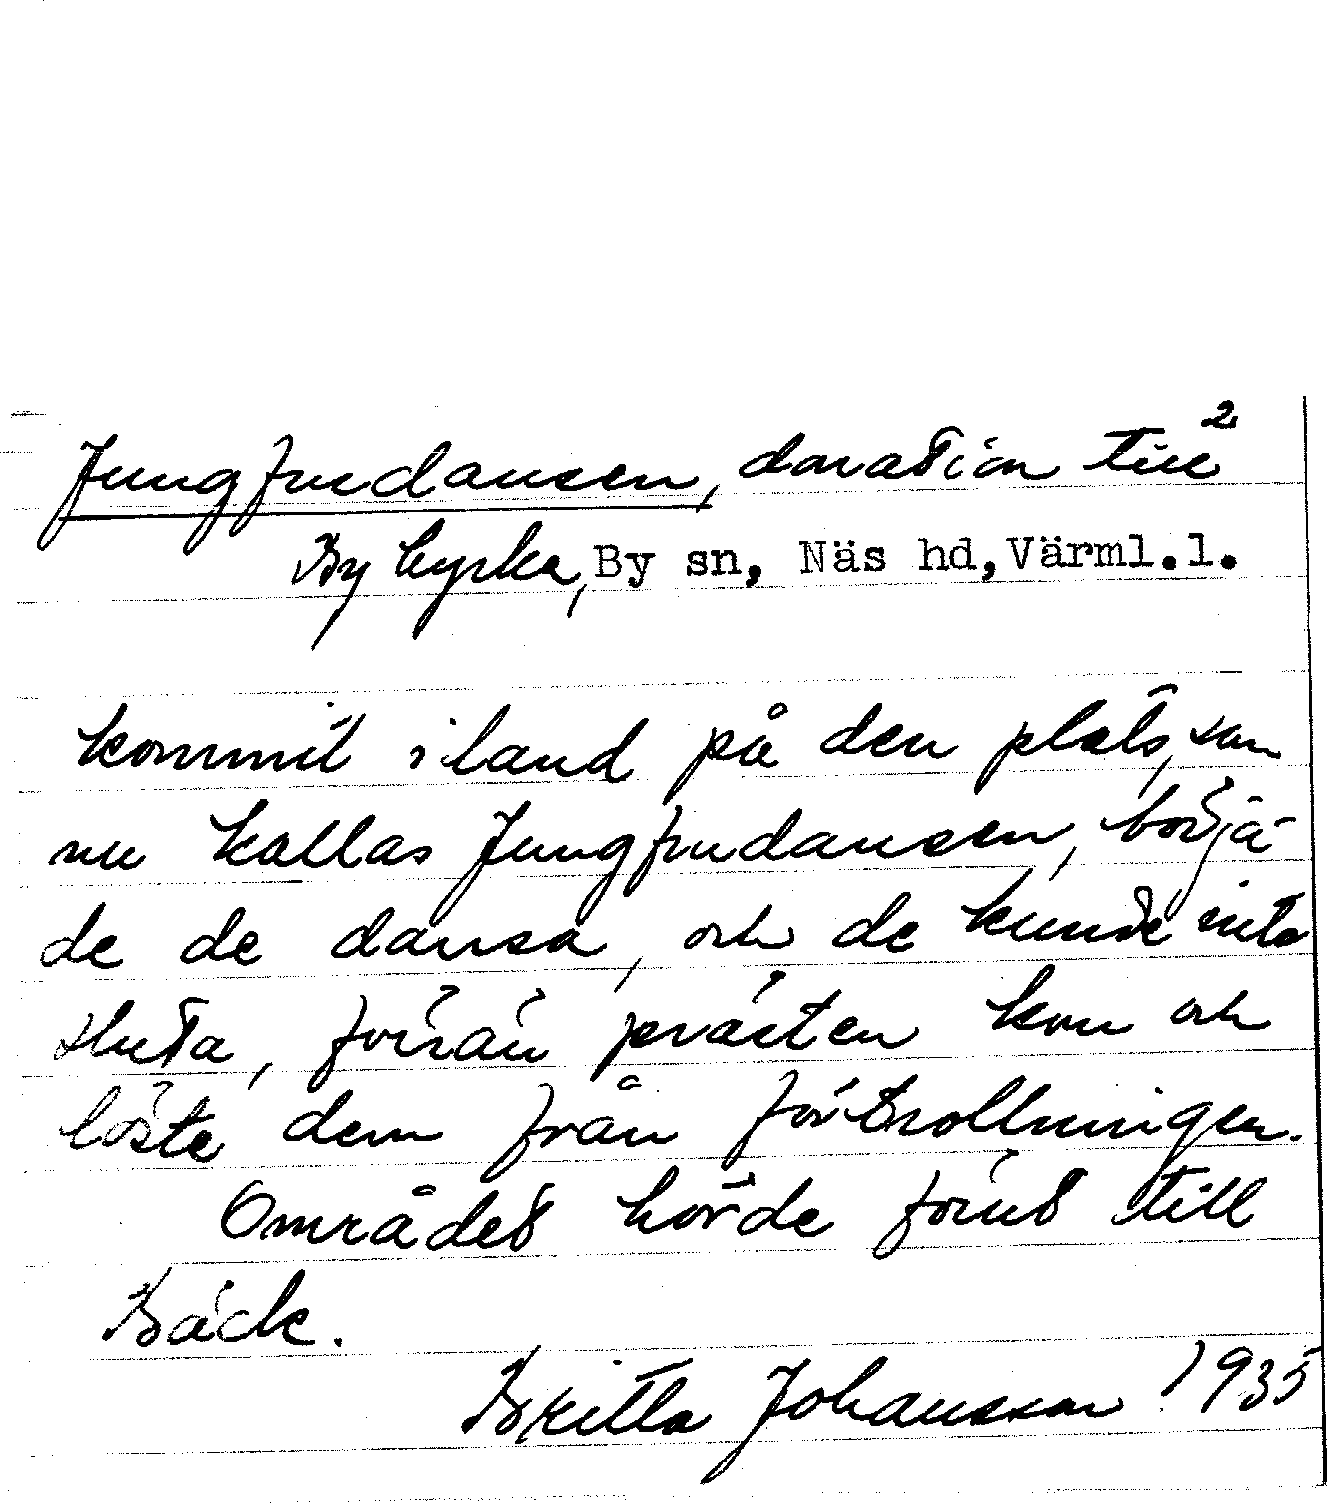 2
Jungfrudansen, donation till
By kyrka, By sn, Näs hd, Värml.l.
kommit i land på den plats, som
nu kallas Jungfrudansen, börja-
de de dansa, och de kunde inte
sluta, förrän prästen kom och
löste dem från förtrollningen.
Området hörde förut till
Bäck.
Britta Johansson 1935